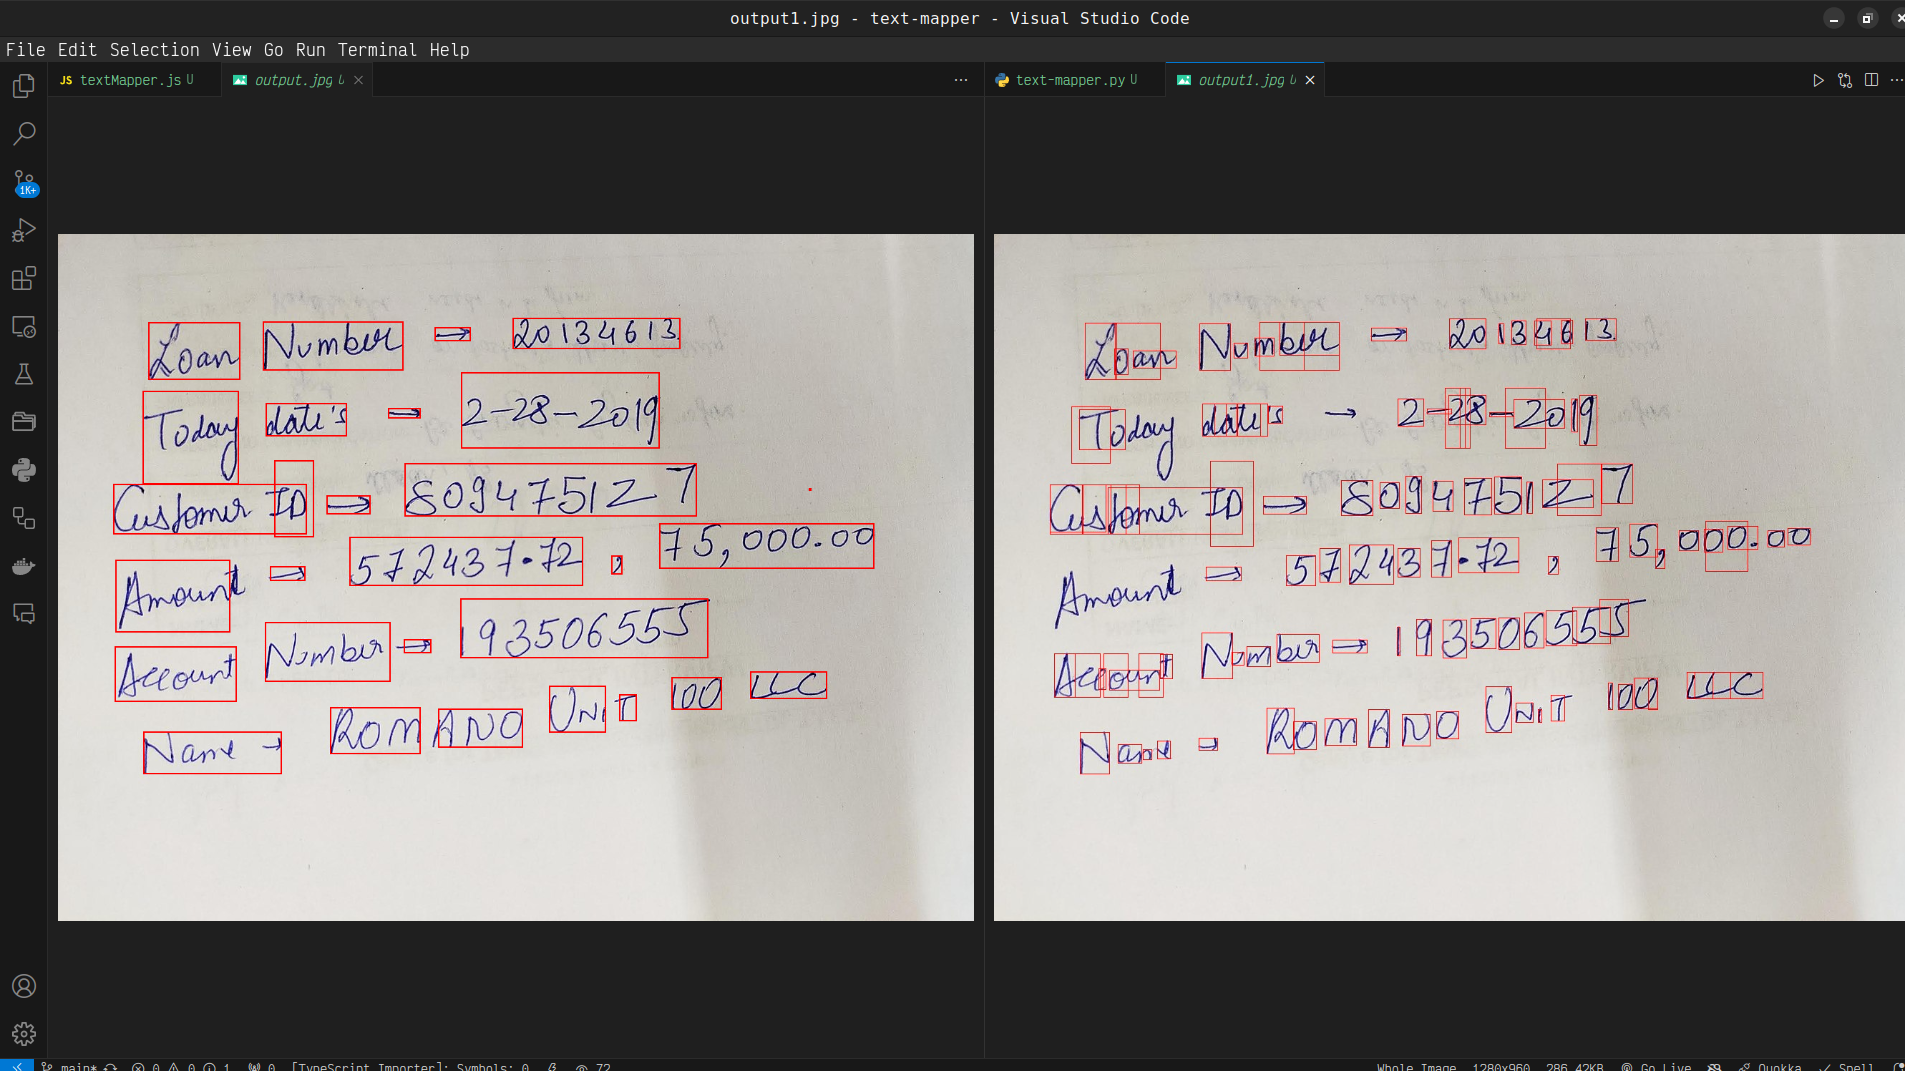 output1.jpg - text-mapper - Visual Studio Code
File Edit Selection View Go Run Terminal Help
JS textMapper.js U output.jpg U
text-mapper.py U output1.jpg U
1K+
Loan Number → 20134613
Today date's → 2-28-2019
Customer ID → 809475127
Amount → 572437.72 , 75,000.00
Account Number → 193506555
Name → ROMANO UNIT 100 LLC
Loan Number → 20134613
Today date's → 2-28-2019
Customer ID → 809475127
Amount → 572437.72 , 75,000.00
Account Number → 193506555
Name → ROMANO UNIT 100 LLC
main* 0 0 1 0 [TypeScript Importer]: Symbols: 0 72 Whole Image 1280x960 286.42KB Go Live Quokka Spell